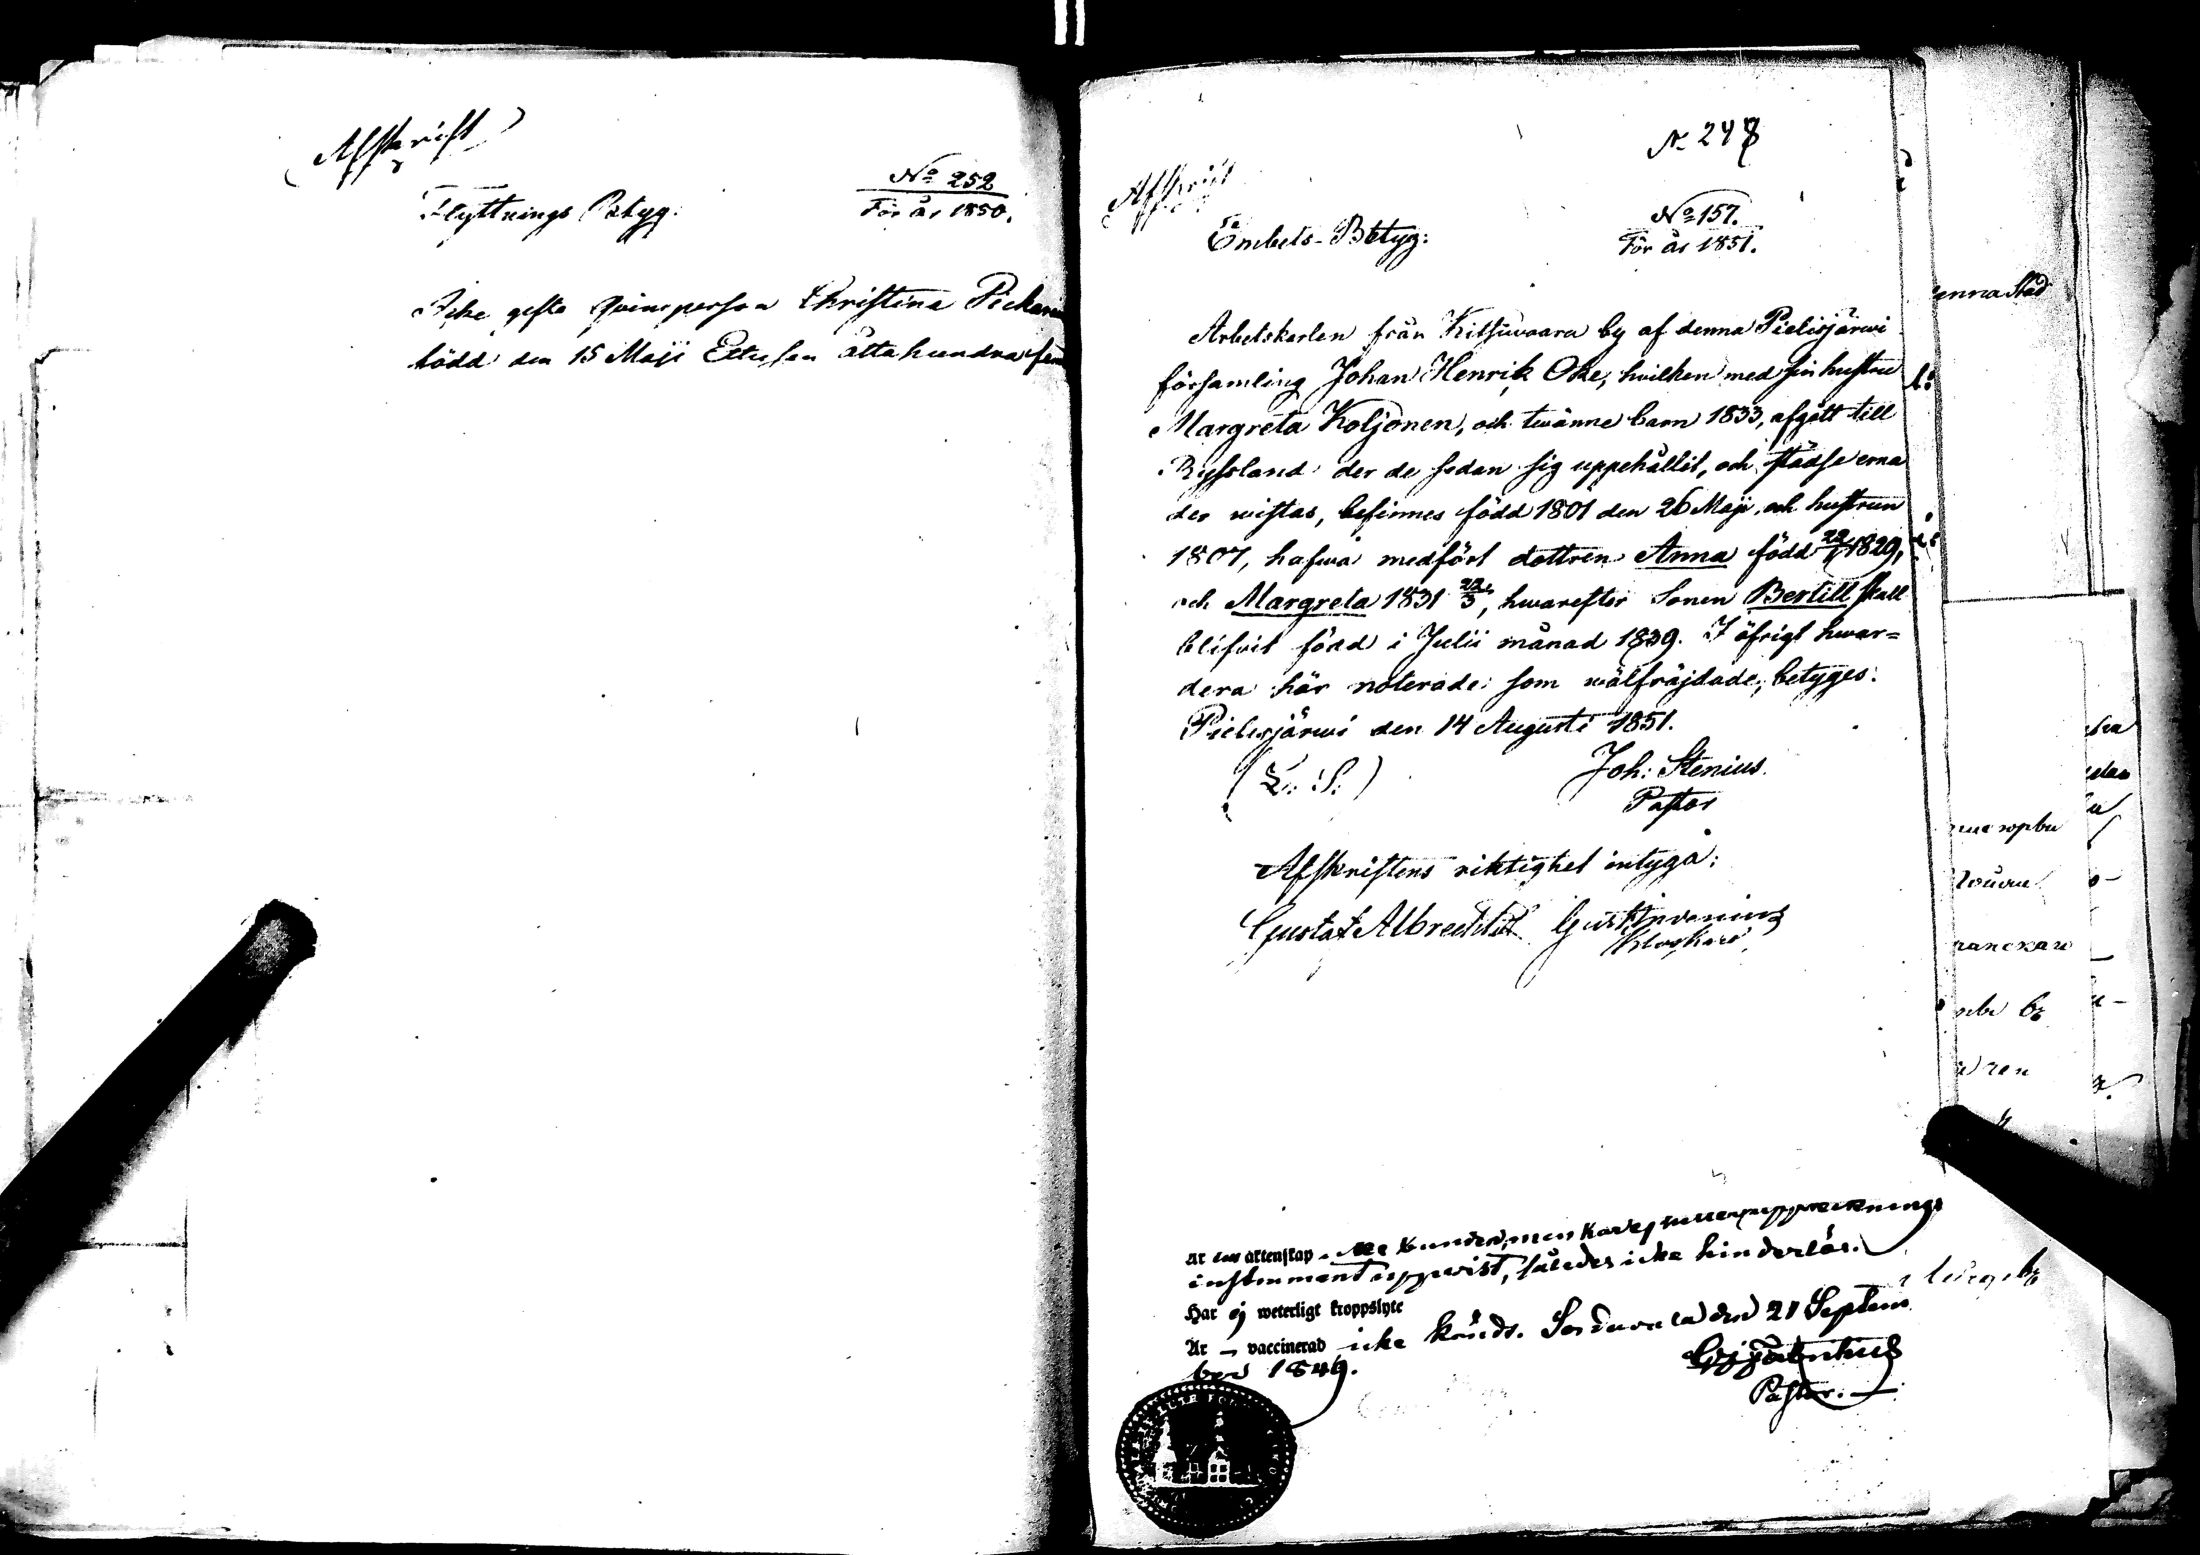 Afskrift
No 252
För år 1850.
Flyttnings Betyg:
Icke gifta Qvinsperson Christina Pickar
född den 15 Maji Ettusen åttahundra fem
N 248
Afskrift
No 157.
För år 1851.
Embets-Betyg:
Arbetskarlen från Kitsiwaara by af denna Pielisjärwi
församling Johan Henrik Oke, hvilken med sin hustru
Margreta Koljonen, och twänne barn 1833, afgått till
Ryssland der de sedan sig uppehållit, och städse
der wistas, befinnes född 1801 den 26 Maji, och hustrun
1807, hafwa medfört dottren Anna född 1829,
och Margreta 1831 22/3, hwarefter Sonen Bertill skall
blifvit född i Julii månad 1839. I öfrigt hwar=
dera här noterade som wälfräjdade, betyges:
Pielisjärwi den 14 Augusti 1851.
(L. S.)
Joh: Stenius.
Pastor
Afskriftens riktighet intyga:
Gustaf Albrecht
Klockare
enna Stad
Är äktenskap
instrument uppvist, således icke hinderlös.
Har ej weterligt kroppslyte
Är – vaccinerad icke känds. Sordavala den 21 Septem
ber 1849.
Pastor.